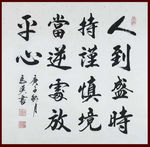 人到盛時
持謹慎境
當逆處放
平心
庚子秋月
書